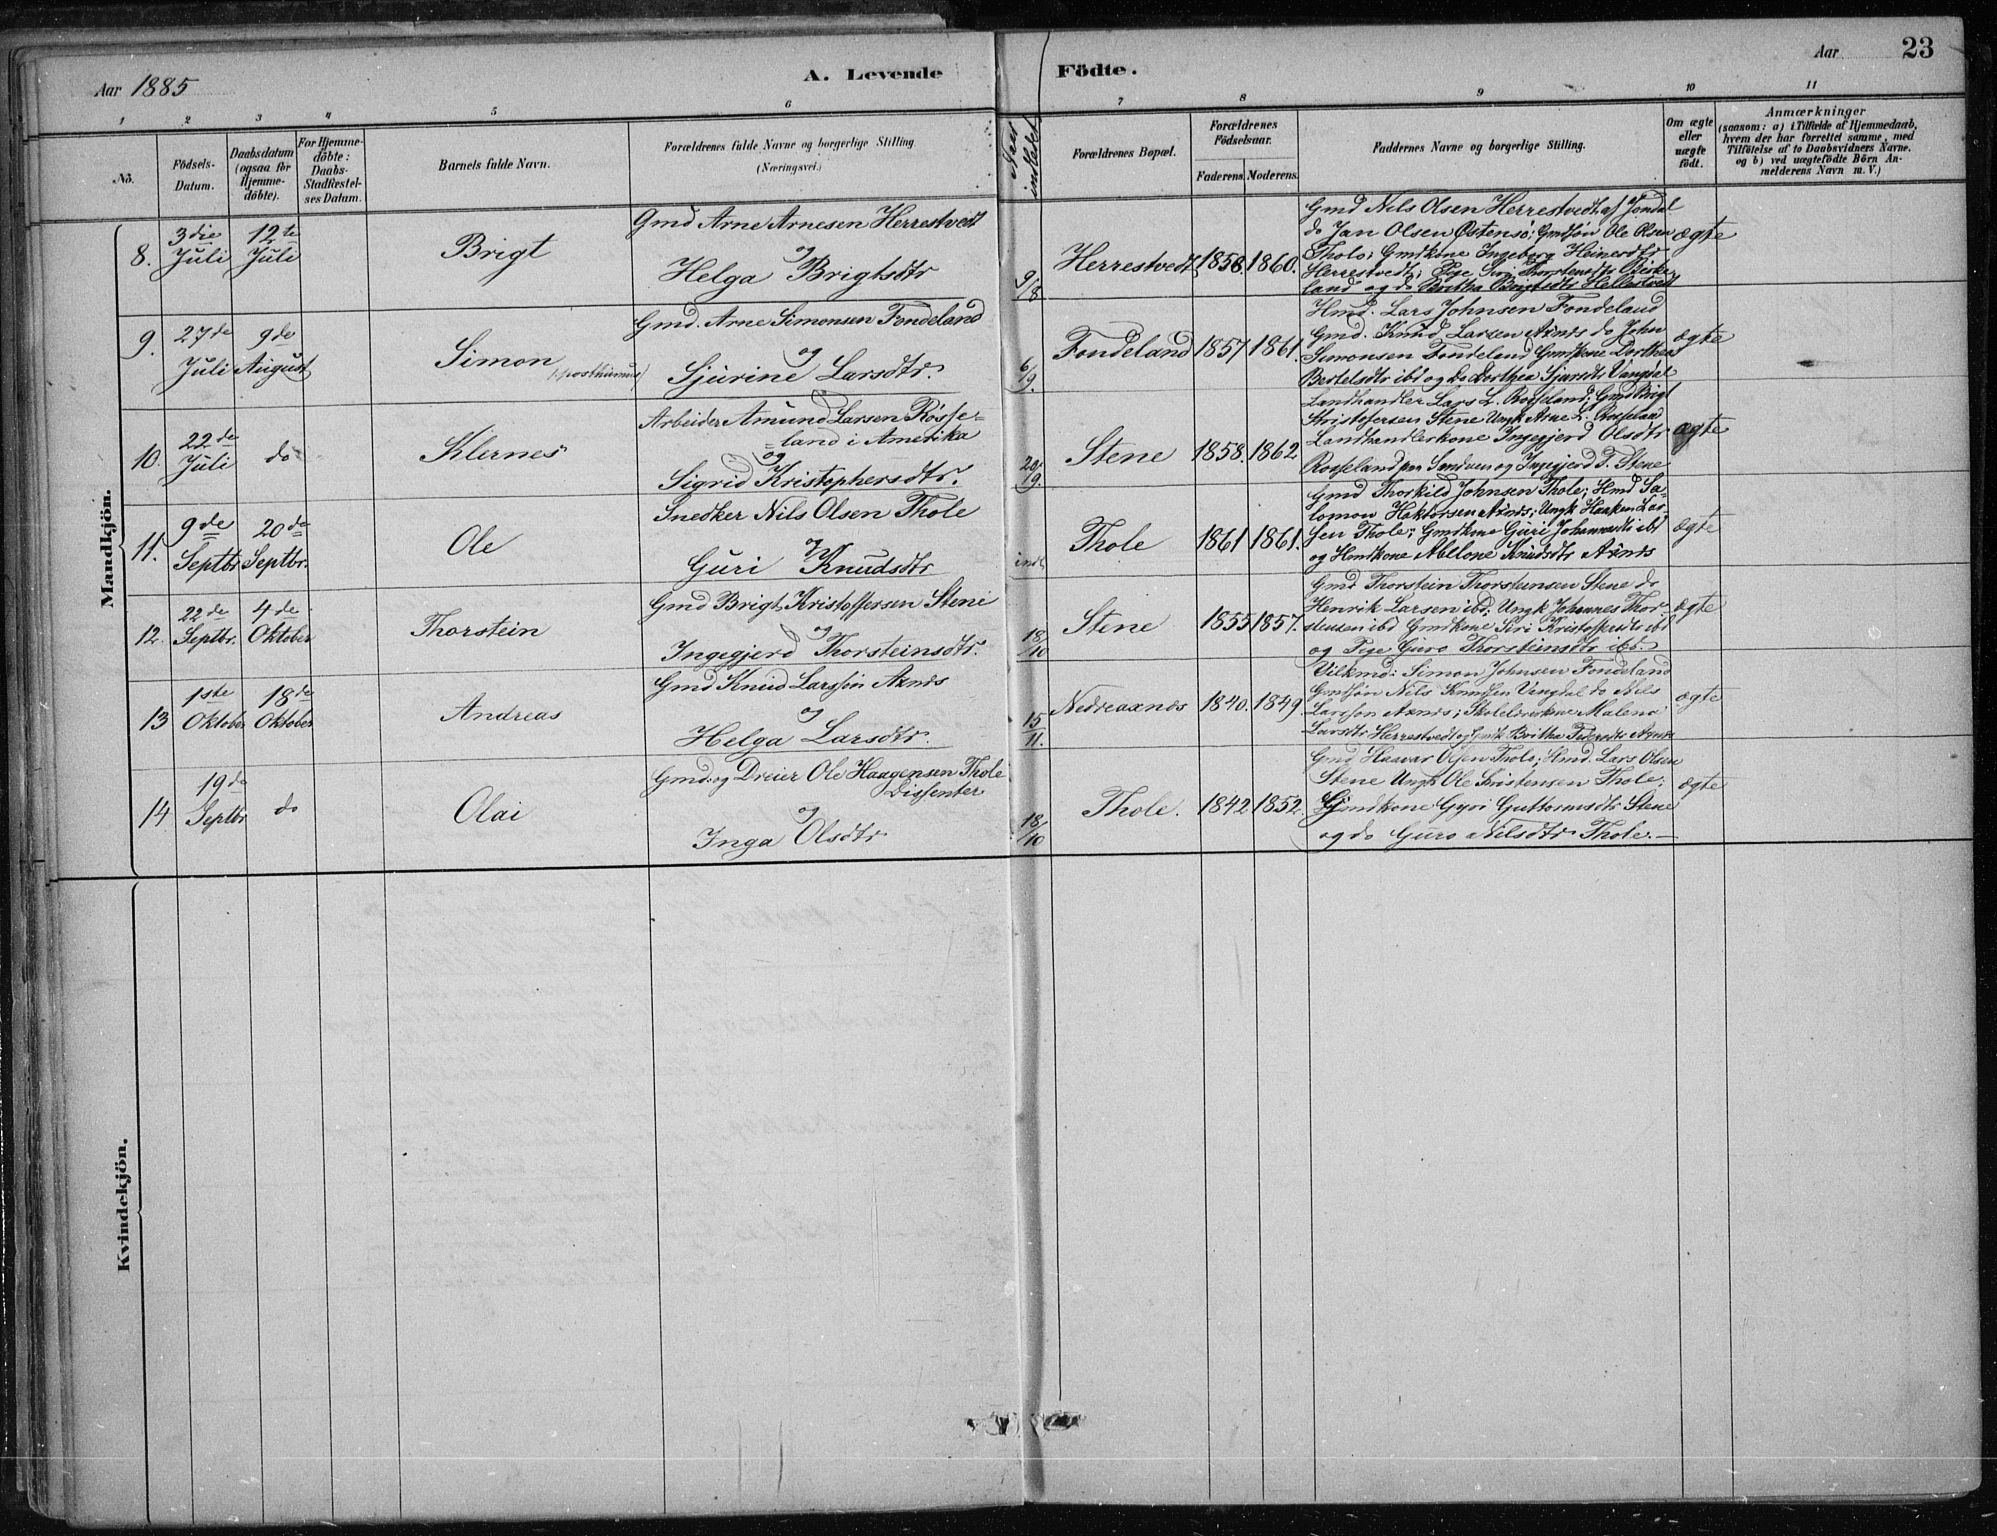 Aar 1885
A. Levende
Födte.
Aar
23
1
2
3
4
5
6
7
8
9
10
11
No.
Födsels-
Datum.
Daabsdatum
(ogsaa for
Hjemme-
döbte).
For Hjemme-
döbte:
Daabs-
Stadfæstel-
ses Datum.
Barnets fulde Navn.
Forældrenes fulde Navne og borgerlige Stilling
(Næringsvei.)
Naar
indledet
Forældrenes Bopæl.
Forældrenes
Födselsaar.
Faderens.
Moderens.
Faddernes Navne og borgerlige Stilling.
Om ægte
eller
uægte
född.
Anmærkninger
(saasom: a) i Tilfælde af Hjemmedaab,
hvem der har forrettet samme, med
Tilföielse af to Daabsvidners Navne.
og b) ved uægtefödte Börn An-
melderens Navn m. V.)
Mandkjön.
8.
3die
Juli
12te
Juli
Brigt
Gmd Arne Arnesen Herrestvedt
og
Helga Brigtsdtr
9/8
Herrestvedt
1858.
1860.
Gmd Nils Olsen Herrestvedt af Jondal
do Jan Olsen Østensö; Gmdsön Ole Olsen
Tholo; Gmdkone Ingeborg Heinersdtr
Herrestvedt; Pige Siri Thorsteinsdtr
land og do Britha Brigtsdtr Hellestvedt
ægte
9.
27de
Juli
9de
August
Simon
(posthumus)
Gmd. Arne Simonsen Fondeland
og
Sjurine Larsdtr.
6/9.
Fondeland
1857
1861.
Hmd. Lars Johnsen Fondeland
Gmd. Knud Larsen Axnes do John
Simonsen Fondeland Gmdkone Dorthea
Bertelsdtr ibd og do Dorthea Sjursdtr Vangdal
ægte
10.
22de
Juli
do
Klernes
Arbeider Amund Larsen Rösse-
land i Amerika
og
Sigrid Kristophersdtr.
20/9.
Stene
1858.
1862
Landhandler Lars L. Rosseland; Gmd Brigt
Kristofersen Stene Ungk Arne L. Rosseland
Landhandlerkone Ingegjerd Olsdtr
Rosseland paa Sandven og Ingegjerd T. Stene
ægte
11.
9de
Septbr
20de
Septbr.
Ole
Snedker Nils Olsen Thole
og
Guri Knudsdtr
indl
Thole
1861
1861.
Gmd Thorkild Johnsen Thole; Hmd Sa-
lomon Haktorsen Axnes; Ungk Haaken Lar-
sen Thole; Gmdkone Guri Johannesdtr ibd
og Hmdkone Abelone Knudsdtr Axnes
ægte
12.
22de
Septbr.
4de
Oktober
Thorstein
Gmd Brigt Kristoffersen Steni
og
Ingegjerd Thorsteinsdtr.
18/10
Stene
1855
1857.
Gmd Thorstein Thorsteinsen Stene do
Henrik Larsen ibd; Ungk Johannes Thor-
steinsen ibd Gmdkone Siri Kristoffersdtr ibd
og Pige Guro Thorsteinsdtr ibd.
ægte
13
1ste
Oktober
18de
Oktober
Andreas
Gmd Knud Larssön Axnes
og
Helga Larsdtr.
15/11.
Nedreaxnes
1840.
1849
Vilkmd: Simon Johnsen Fondeland
Gmdsön Nils Knudsen Vangdal do Nils
Larssön Axnes; Skolelærerkone Malena
Larsdtr Herrestvedt og Gmdk Britha Pedersdtr Axnes
ægte
14
19de
Septbr
do
Olai
Gmd. og Dreier Ole Haagensen Thole
Dissenter
og
Inga Olsdtr
18/10
Thole.
1842
1852.
Gmd Haavar Olsen Tholo; Hmd. Lars Olsen
Stene Ungk Ole Kristensen Thole;
Gmdkone Gyri Guttormsdtr Stene
og do Guro Nilsdtr Thole.
ægte
Kvindekjön.